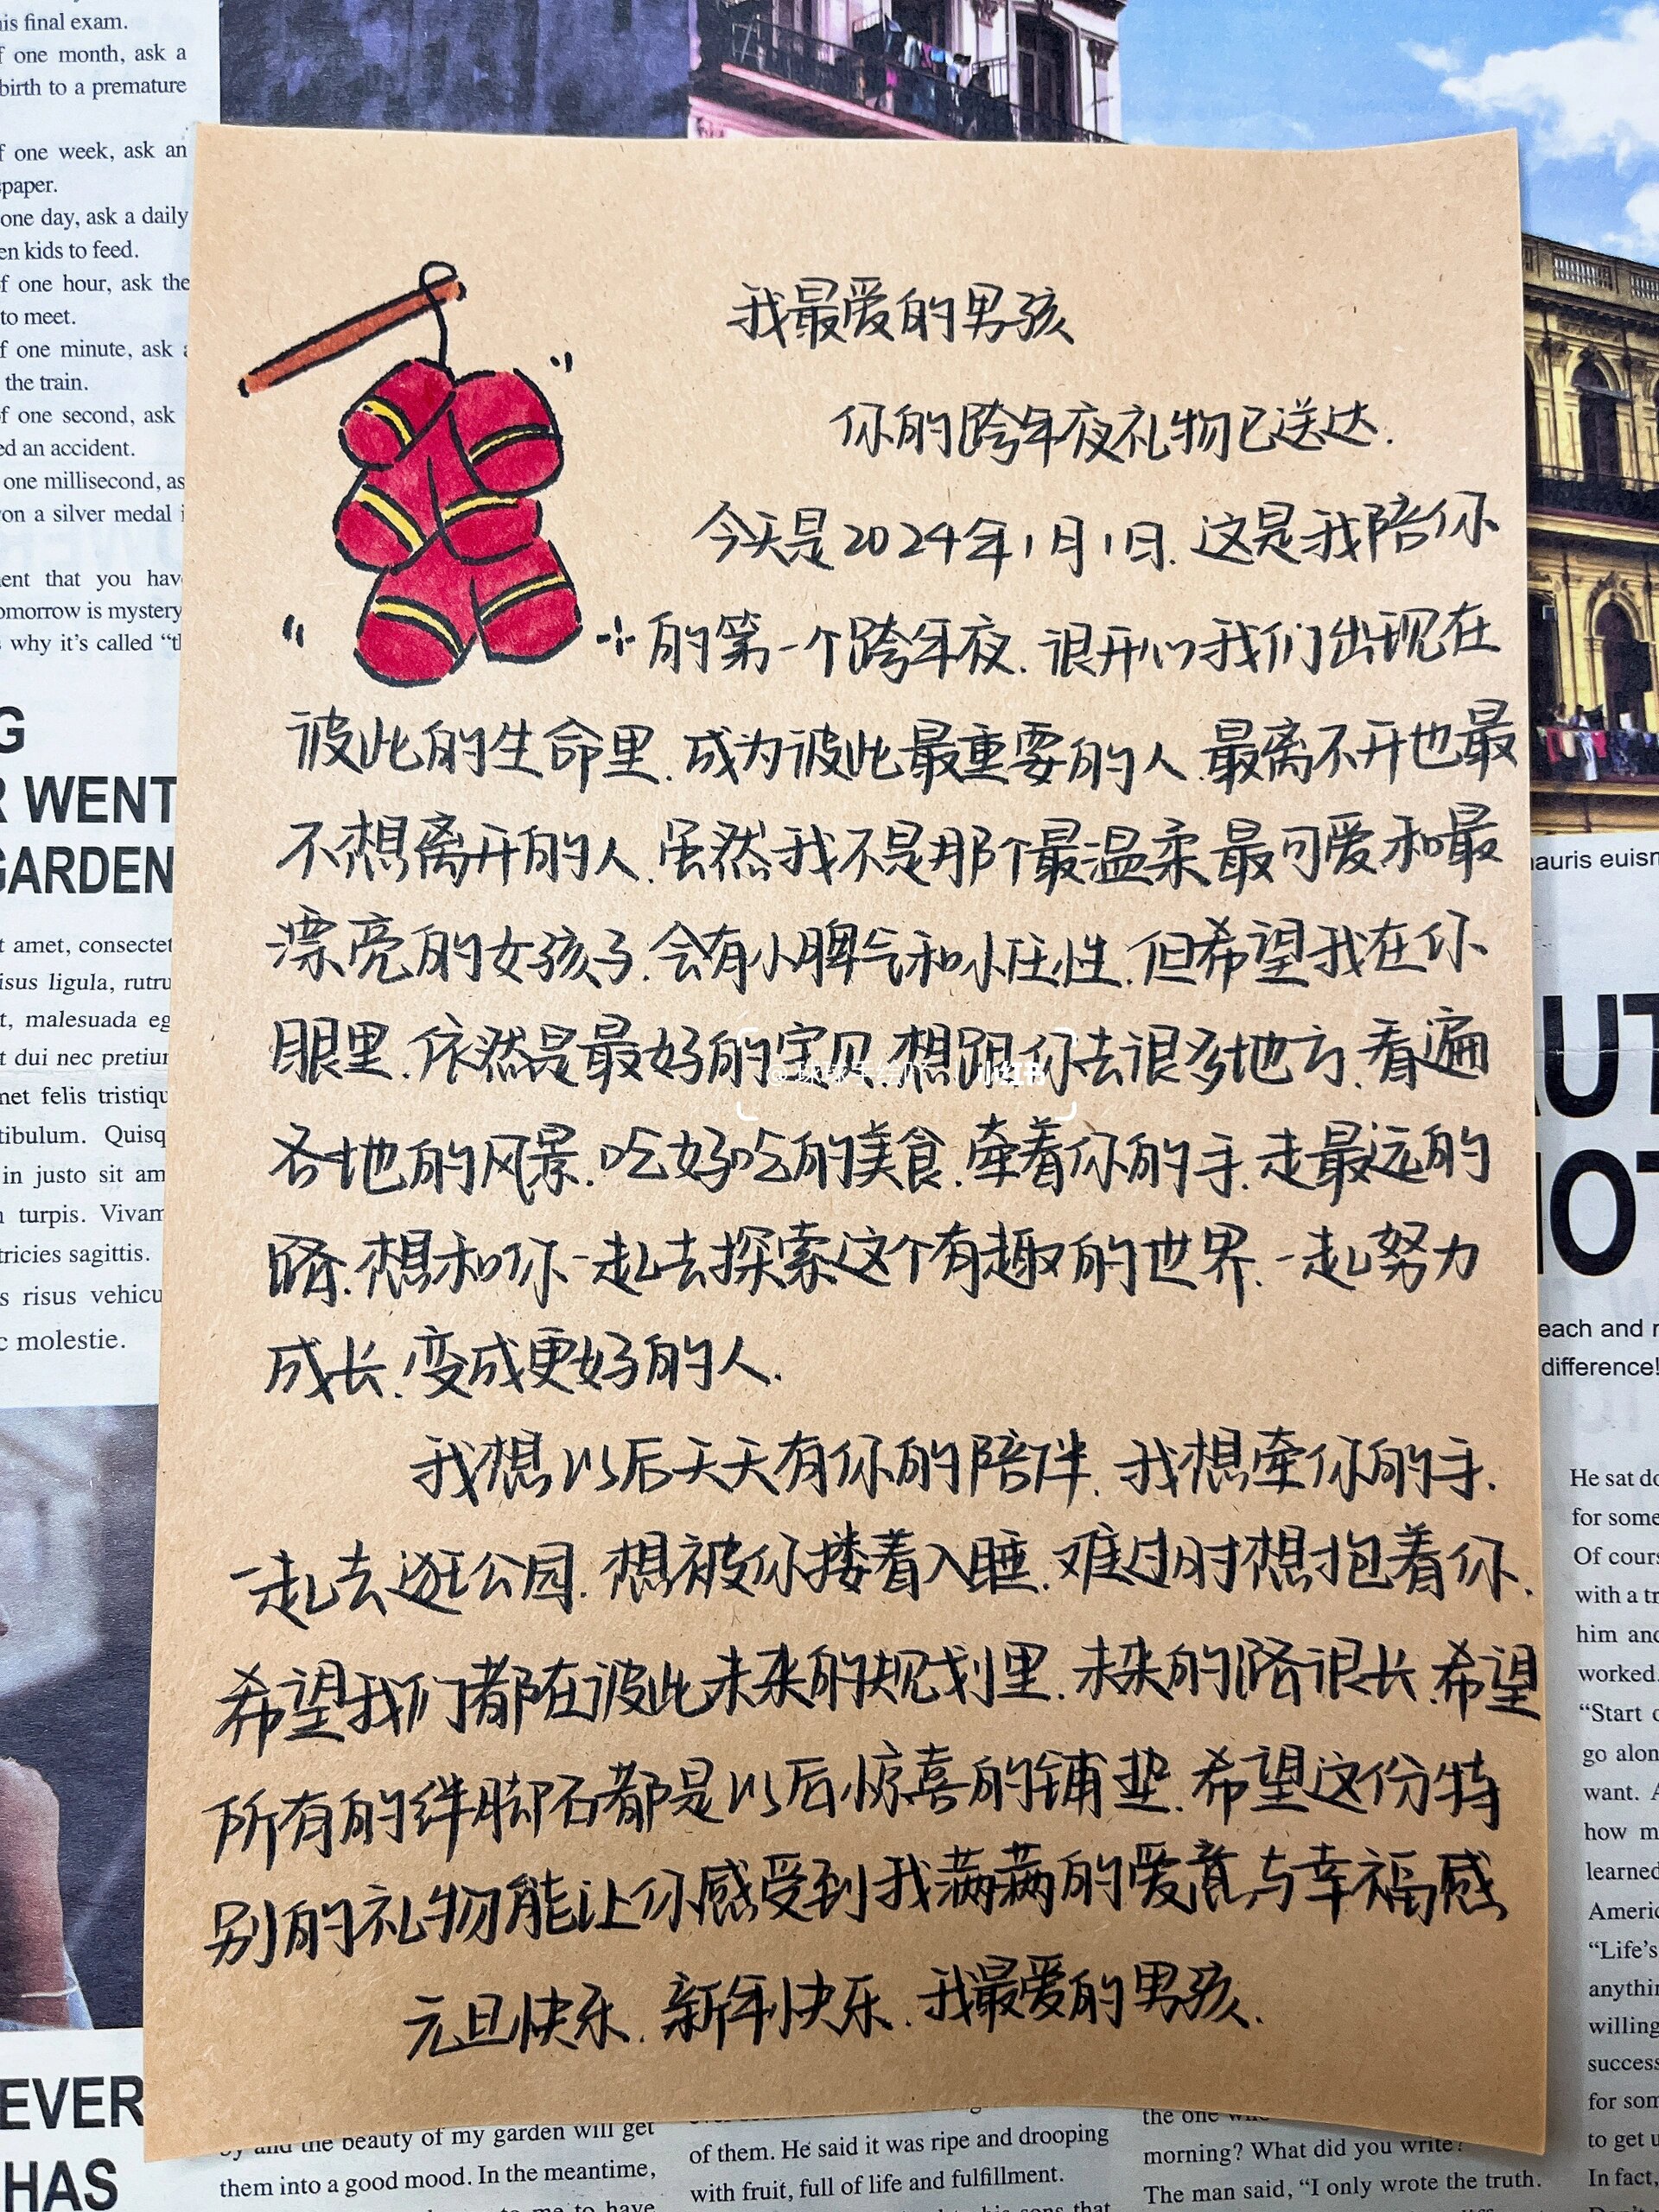 我最爱的男孩
你的跨年夜礼物已送达.
今天是2024年1月1日.这是我陪你
的第一个跨年夜.很开心我们出现在
彼此的生命里.成为彼此最重要的人.最离不开也最
不想离开的人.虽然我不是那个最温柔最可爱和最
漂亮的女孩子.会有小脾气和小任性.但希望我在你
眼里.依然是最好的宝贝.想跟你去很多地方.看遍
各地的风景.吃好吃的美食.牵着你的手.走最远的
路.想和你一起去探索这个有趣的世界.一起努力
成长.变成更好的人.
我想以后天天有你的陪伴.我想牵你的手.
一起去逛公园.想被你搂着入睡.难过时想抱着你.
希望我们都在彼此未来的规划里.未来的路很长.希望
所有的绊脚石都是以后惊喜的铺垫.希望这份特
别的礼物能让你感受到我满满的爱意与幸福感
元旦快乐.新年快乐.我最爱的男孩.
小红书
is final exam.
f one month, ask a
birth to a premature
f one week, ask an
spaper.
one day, ask a daily
en kids to feed.
f one hour, ask the
to meet.
f one minute, ask
the train.
of one second, ask
ed an accident.
one millisecond, as
on a silver medal
ent that you hav
omorrow is mystery
why it's called "t
G
R WENT
GARDEN
t amet, consectet
isus ligula, rutru
t, malesuada eg
t dui nec pretiur
met felis tristiqu
tibulum. Quisq
in justo sit am
turpis. Vivam
tricies sagittis.
s risus vehicu
c molestie.
EVER
HAS
by and the beauty of my garden will get
them into a good mood. In the meantime,
of them. He said it was ripe and drooping
with fruit, full of life and fulfillment.
the one who
morning? What did you write?
The man said, "I only wrote the truth.
auris euism
AUT
NOT
each and
difference!
He sat do
for some
Of cours
with a tr
him and
worked.
"Start o
go alon
want. A
how m
learned
Americ
"Life's
anythin
willing
success
for som
to get u
In fact,